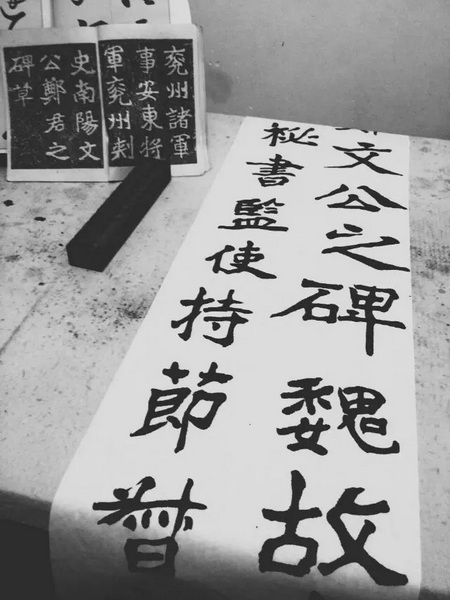 兗州諸軍
事安東將
軍兗州刾
史南陽文
公鄭君之
碑草
文公之碑魏故
秘書監使持節督